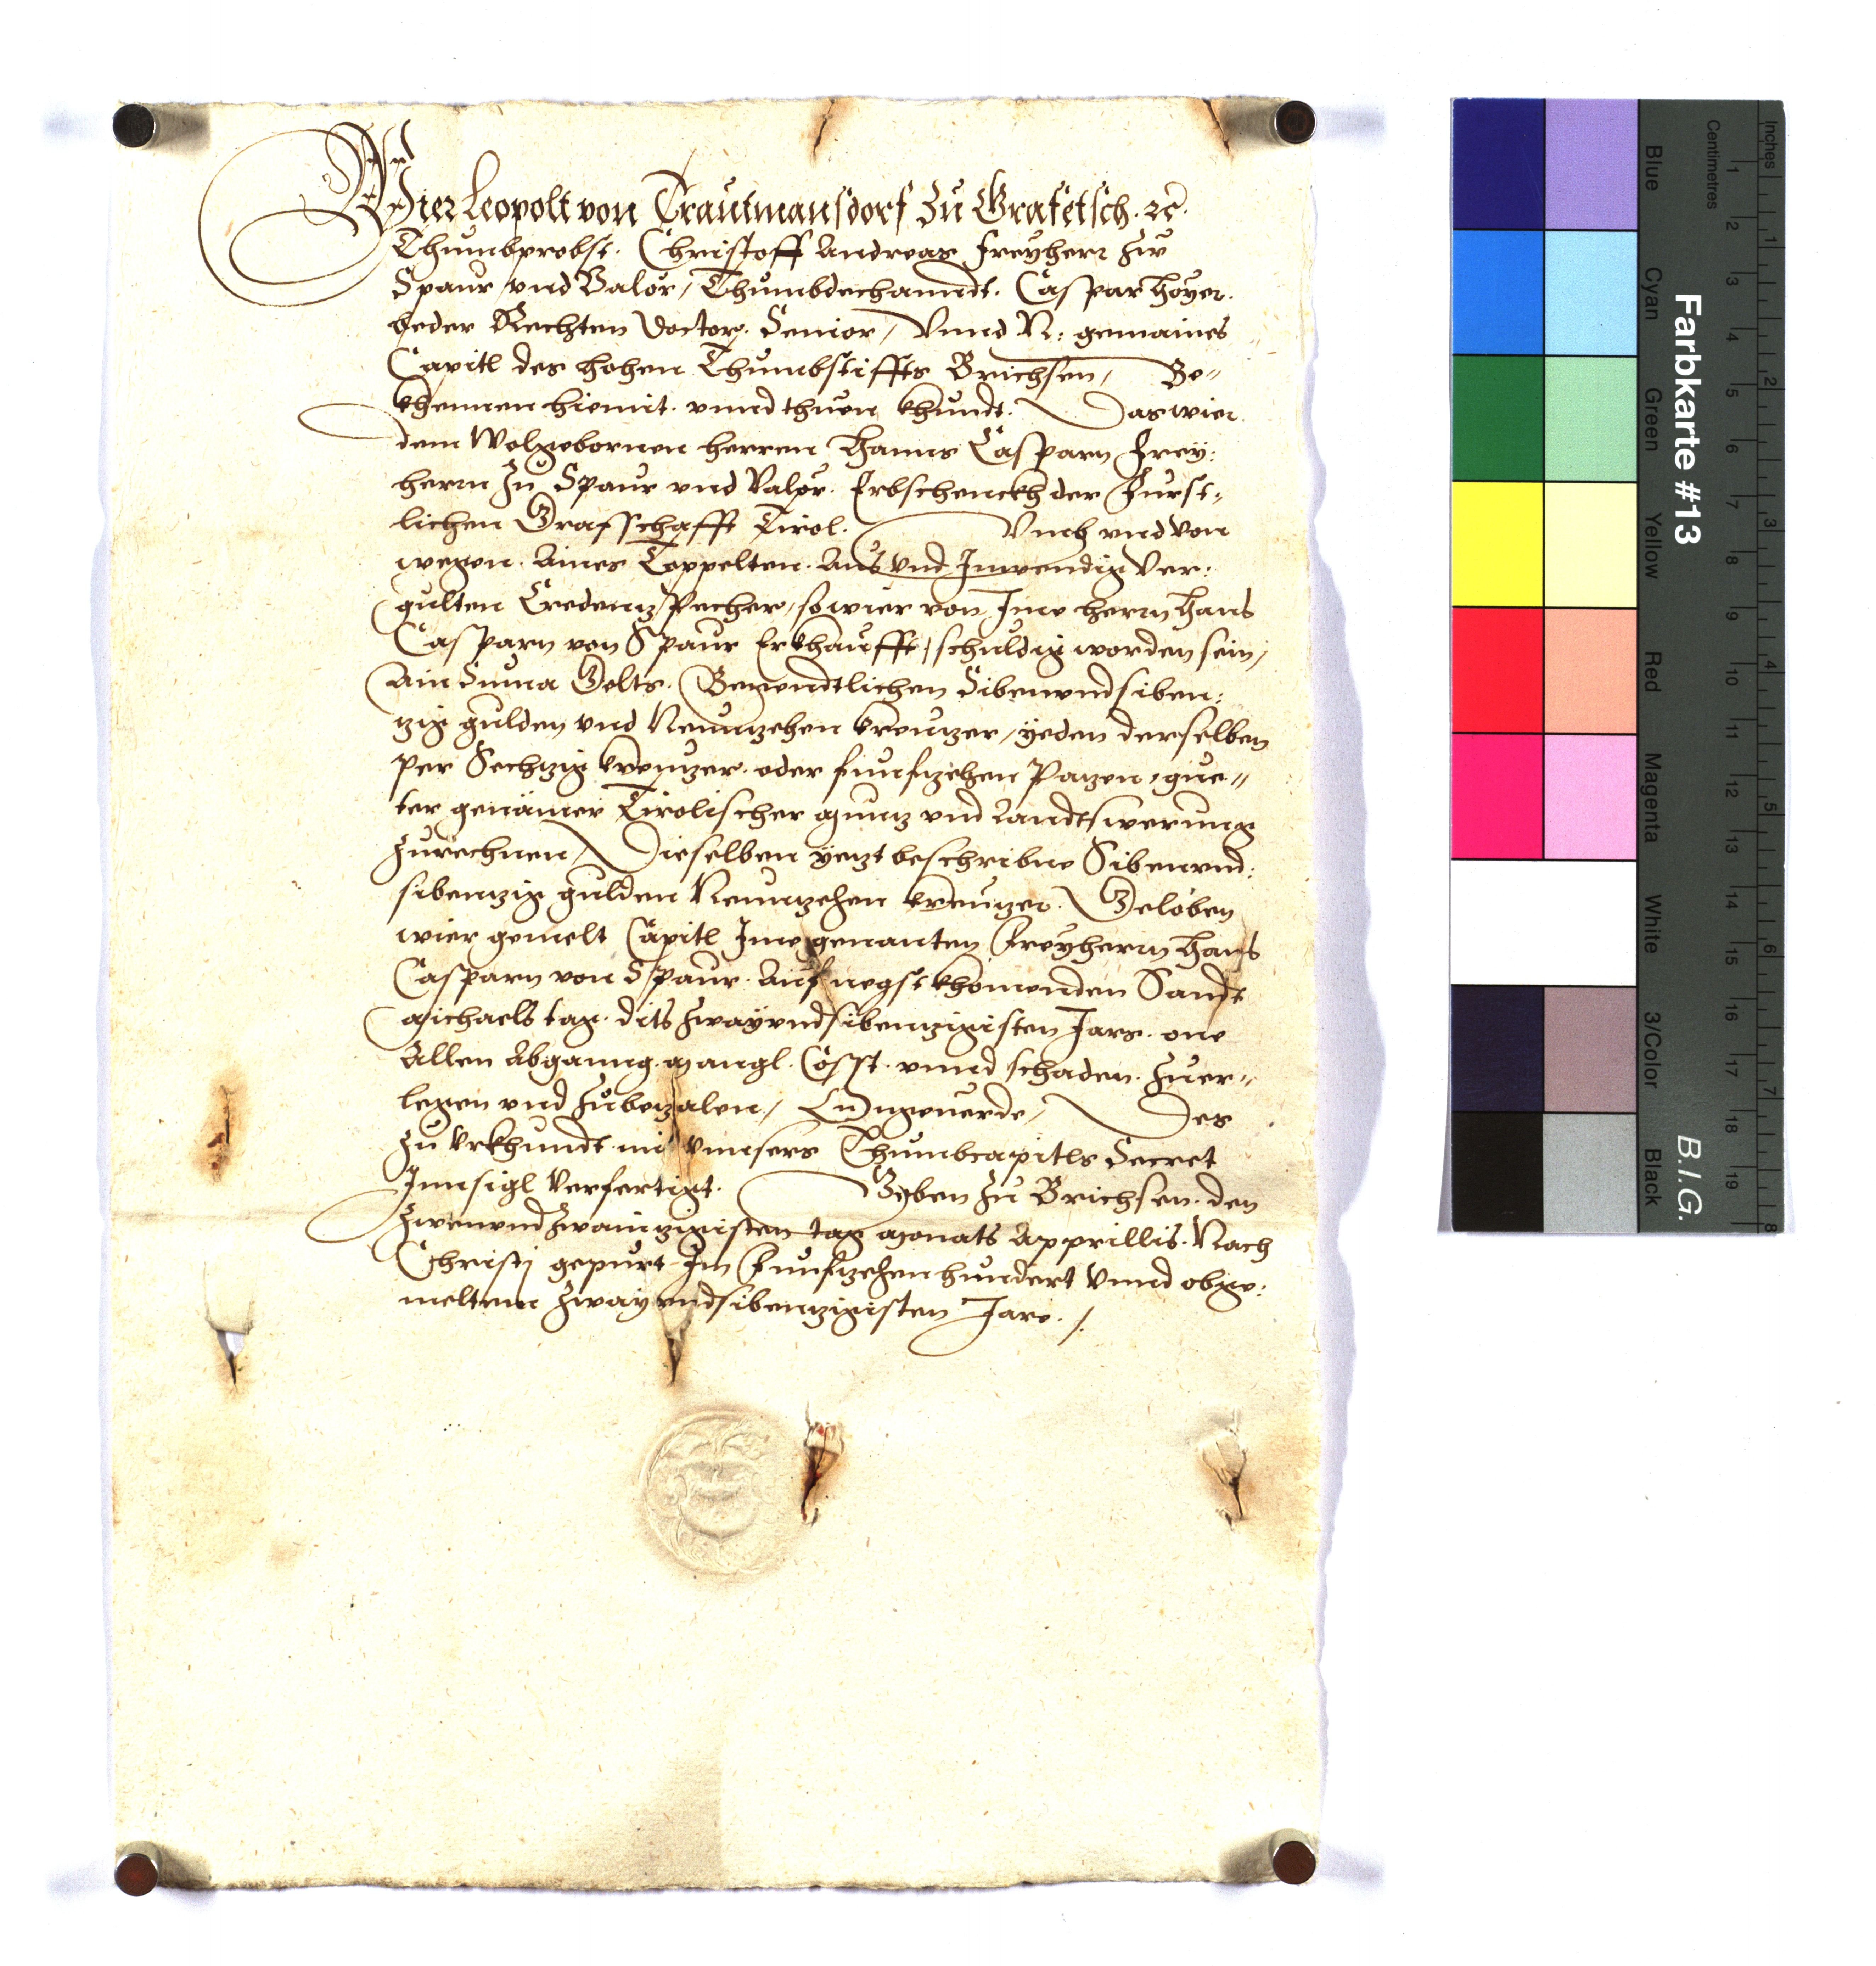 Wier Leopolt von Trautmansdorf zu Grafetsch. ꝛc.
Thumbprobst. Christoff Andreas Freyherr zw
Spaur vnd Valör, Thumbdechanndt. Caspar Hoyer.
beder Rechten Doctor. Senior, Vnnd N: gemaines
Capitl des hohen Thumbstiffts Brichsen, Be-
khennen hiemit. vnnd thuen khundt. Das wier
dem Wolgebornen herren Hanns Casparn Frey:
herrn zu Spaur vnd Valör. Erbschenckh der Furst-
lichen Grafschafft Tirol. Vmb vnd von
wegen. Aines Toppelten. Aus vnd Inwendig Ver:
gulten Credenz Pecher, so wier von Ime herrn Hans
Casparn von Spaur Erkhaufft, schuldig worden sein,
Ain Suma Gelts. Benendtlichen Sibenvndsiben:
zig gulden vnd Neunzehen kreuzer, yeden derselben
per Sechzig kreuzer. oder funfzehen Pazen, gue-
ter genämer Tirolischer Munz vnd Landtswerung
zurechnen, Dieselben yezt beschribne Sibenvnd:
sibenzig gulden Neunzehen kreuzer. Geloben
wier gemelt Capitl Ime genanten Freyherrn Hans
Casparn von Spaur. Auf negst khomenden Sandt
Michaels tag. dits zwayvndsibenzigisten Jars. one
Allen Abganng. Mangl. Cosst. vnnd schaden. zuer-
legen vnd zubezalen, Ungeuerde, Des
zu Vrkhundt mit vnnsers Thumbcapitls Secret
Innsigl Verfertigt. Geben zu Brichsen. den
zwenvndzwainzigisten tag Monats Apprillis. Nach
Christj gepurt Im Funfzehenhundert Vnnd obge:
meltem zwayvndsibenzigisten Jare.
Farbkarte #13
B.I.G.
Inches
Centimetres
1 2 3 4 5 6 7 8
1 2 3 4 5 6 7 8 9 10 11 12 13 14 15 16 17 18 19
Blue
Cyan
Green
Yellow
Red
Magenta
White
3/Color
Black